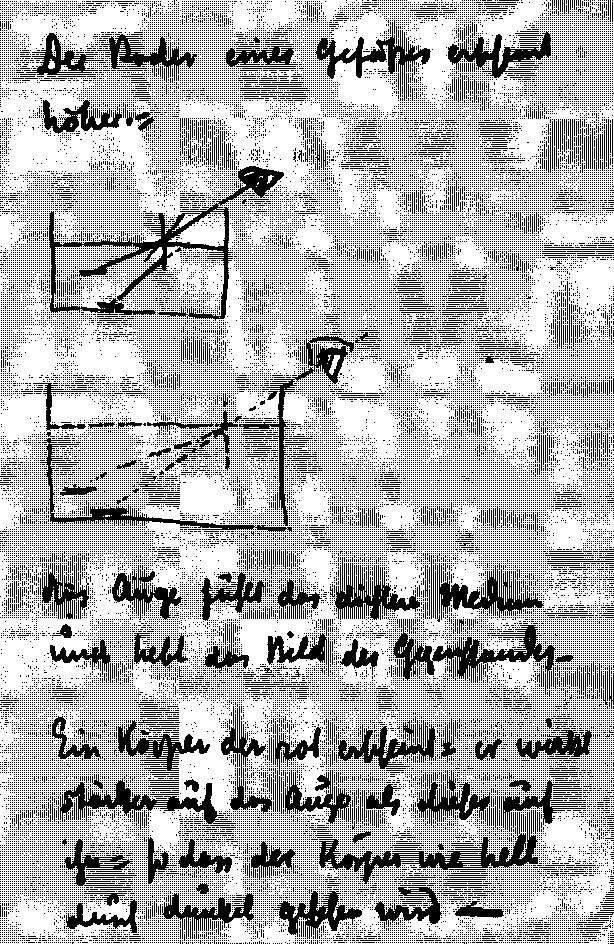 Der Boden eines Gefäßes erscheint
höher.=
Das Auge fühlt das dichtere Medium
und hebt das Bild des Gegenstandes –
Ein Körper der rot erscheint = er wirkt
stärker auf das Auge als dieses auf
ihn = so dass der Körper wie hell
durch dunkel gesehen wird —